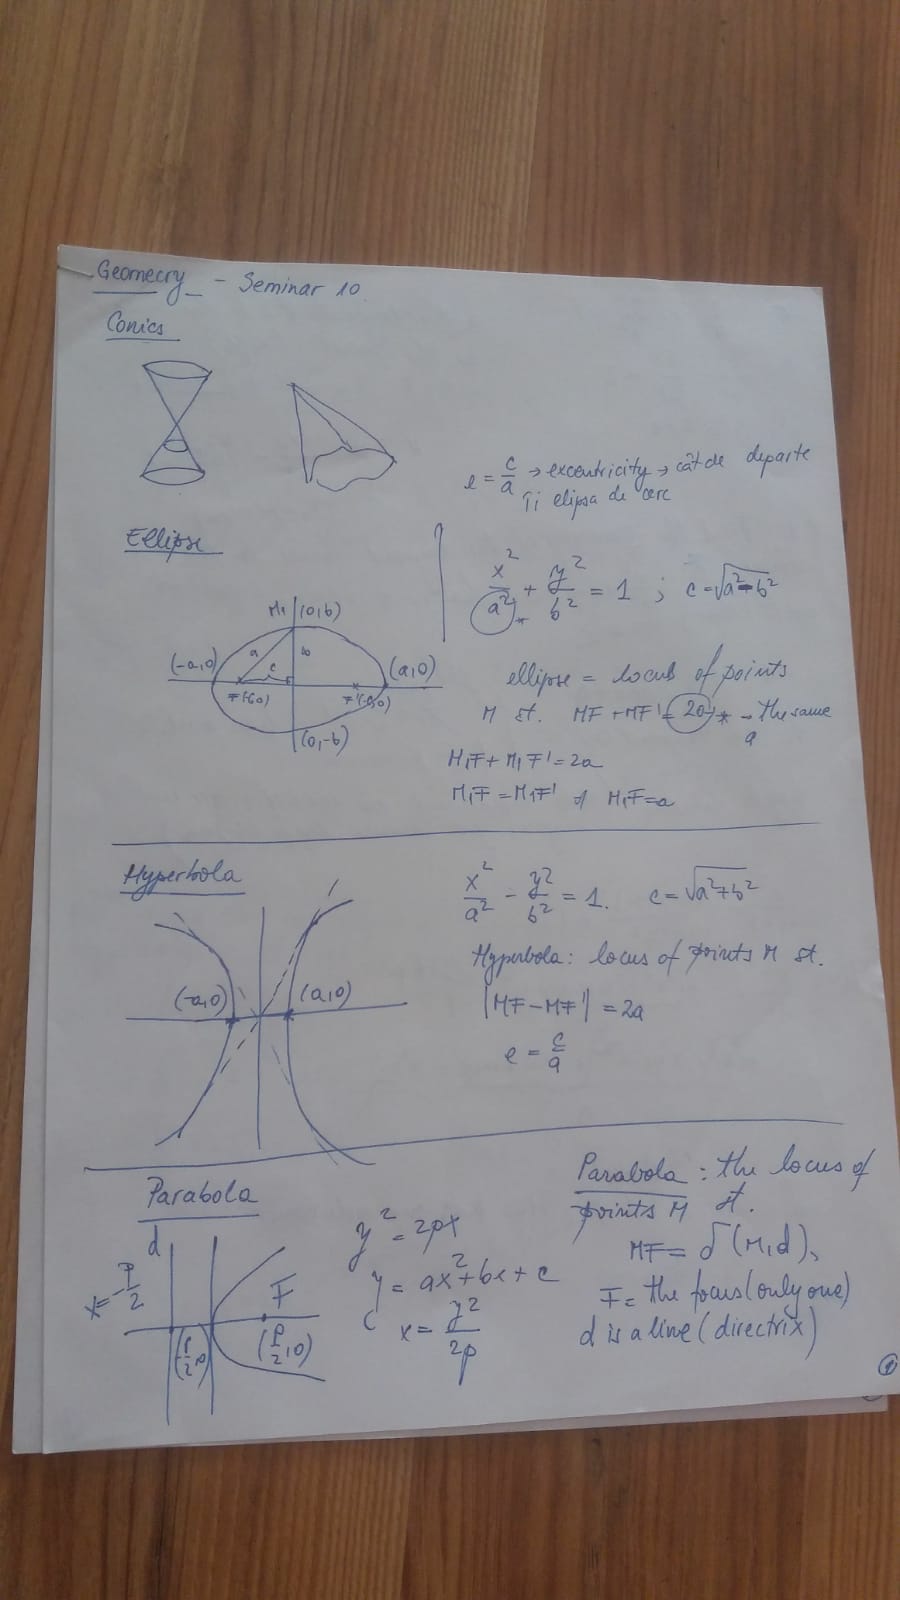 Geomecry - Seminar 10
Conics
e = c/a → excentricity → cât de departe
îi elipsa de cerc
Ellipse
x²/a² + y²/b² = 1 ; c = √(a² - b²)
*
M₁ (0,b)
(-a,0)
a
b
c
(a,0)
(0,-b)
ellipse = locus of points
M st. MF + MF' = 2a * → the same
a
M₁F + M₁F' = 2a
M₁F = M₁F' M₁F = a
Hyperbola
x²/a² - y²/b² = 1. c = √(a² + b²)
(-a,0)
(a,0)
Hyperbola: locus of points M st.
|MF - MF'| = 2a
e = c/a
Parabola
d
x = -p/2
F
(p/2, 0)
y² = 2px
y = ax² + bx + c
x = y²/2p
Parabola : the locus of
points M st.
MF = δ(M,d),
F = the focus (only one)
d is a line (directrix)
1